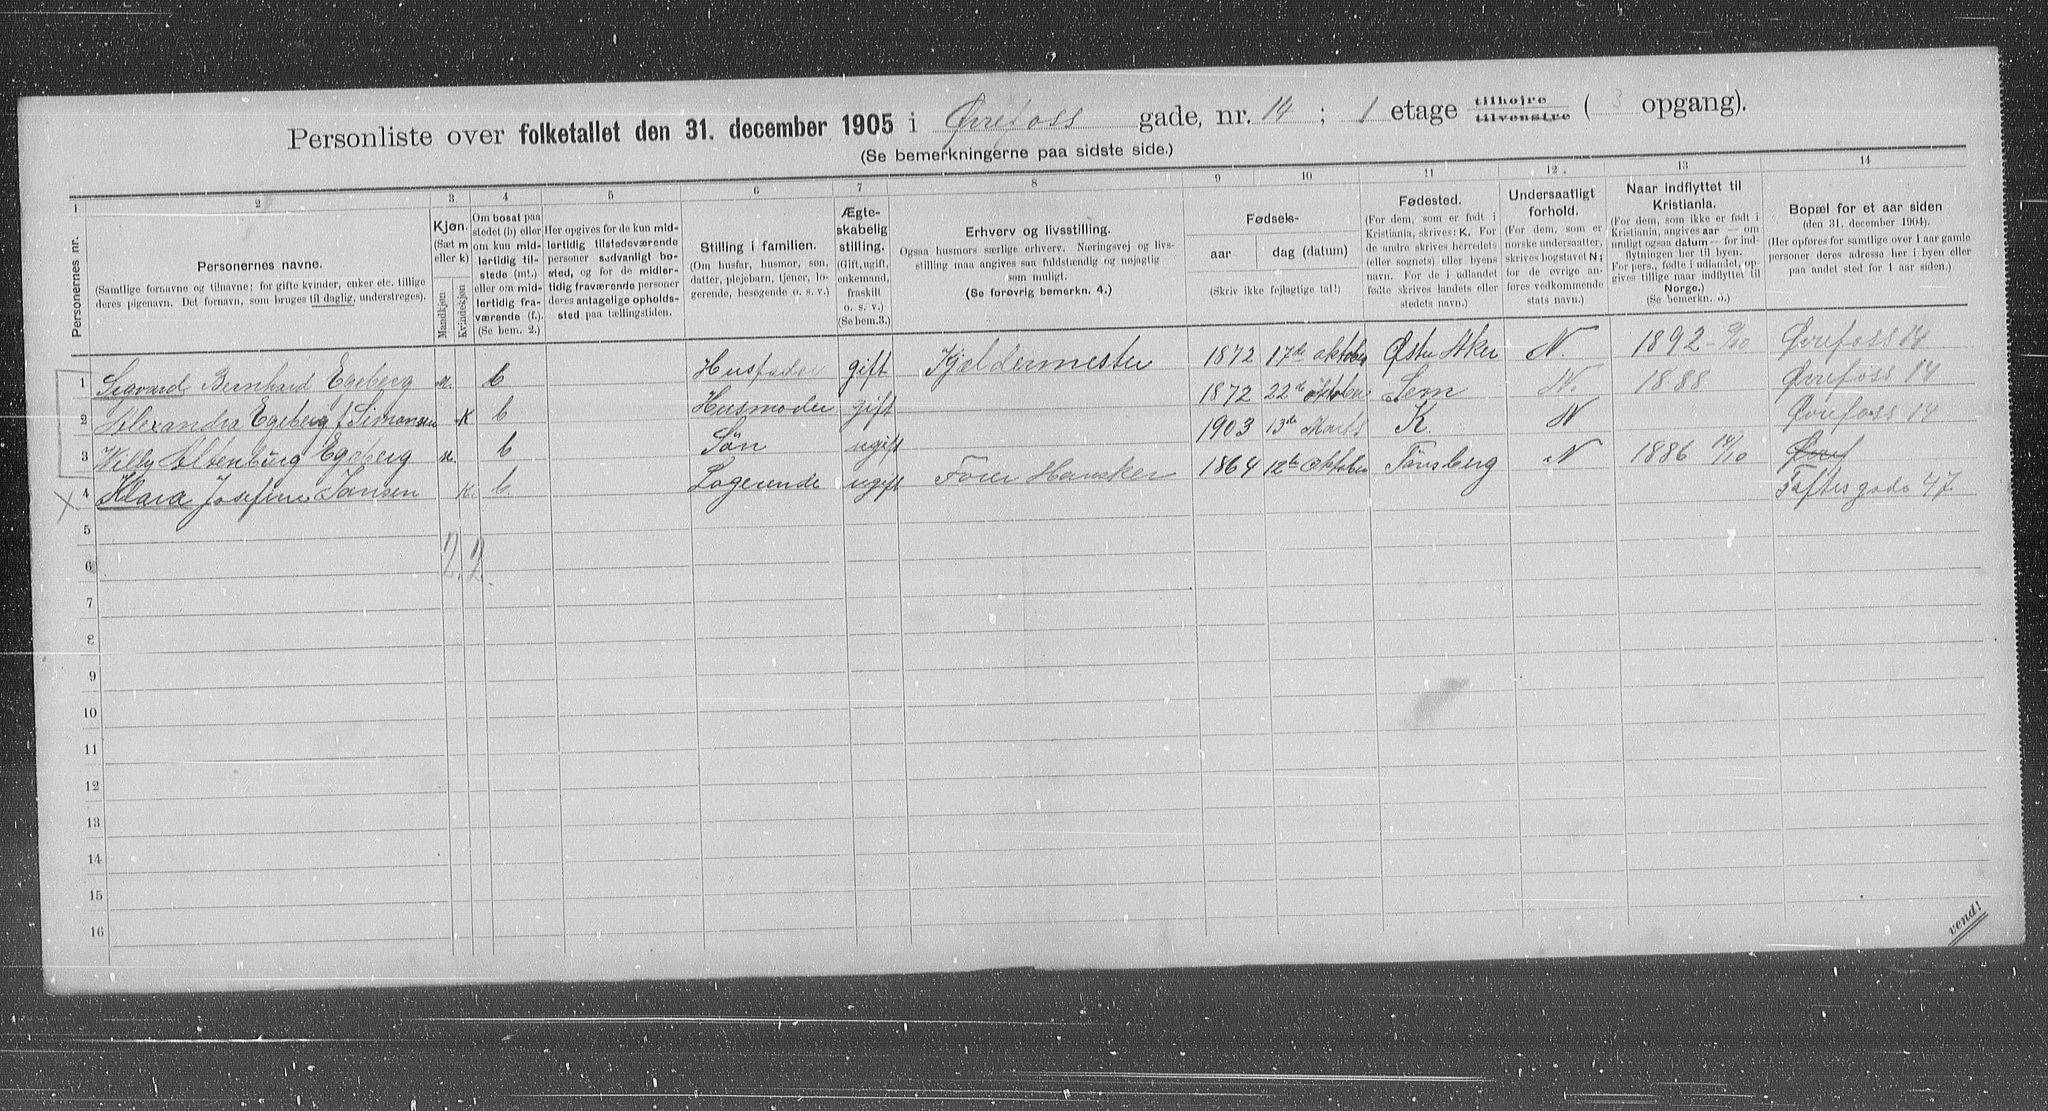 Personliste over folketallet den 31. december 1905 i Øvrefoss gade, nr. 14 ; 1 etage tilhøjre tilvenstre ( 3 opgang).
(Se bemerkningerne paa sidste side.)
1 2 3 4 5 6 7 8 9 10 11 12 13 14
Personernes nr.
Personernes navne.
(Samtlige fornavne og tilnavne; for gifte kvinder, enker etc. tillige deres pigenavn. Det fornavn, som bruges til daglig, understreges).
Kjøn.
(Sæt m eller k)
Mandkjøn
Kvindekjøn
Om bosat paa stedet (b) eller om kun midlertidig tilstede (mt.) eller om midlertidig fraværende (f.). (Se bem. 2.)
Her opgives for de kun midlertidig tilstedeværende personer sædvanligt bosted, og for de midlertidig fraværende personer deres antagelige opholdssted paa tællingstiden.
Stilling i familien.
(Om husfar, husmor, søn, datter, plejebarn, tjener, logerende, besøgende o. s. v.)
Ægteskabelig stilling.
(Gift, ugift, enkemand, fraskilt o. s. v.) (Se bem. 3.)
Erhverv og livsstilling.
Ogsaa husmors særlige erhverv. Næringsvej og livsstilling maa angives saa fuldstændig og nøjagtig som muligt.
(Se forøvrig bemerkn. 4.)
Fødsels-
aar dag (datum)
(Skriv ikke fejlagtige tal!)
Fødested.
(For dem, som er født i Kristiania, skrives: K. For de andre skrives herredets (eller sognets) eller byens navn. For de i udlandet fødte skrives landets eller stedets navn.)
Undersaatligt forhold.
(For dem, som er norske undersaatter, skrives bogstavet N; for de øvrige anføres vedkommende stats navn.)
Naar indflyttet til Kristiania.
(For dem, som ikke er født i Kristiania, angives aar — om muligt ogsaa datum — for indflytningen her til byen. For pers., fødte i udlandet, opgives tillige naar indflyttet til Norge.)
(Se bemerkn. 5.)
Bopæl for et aar siden
(den 31. december 1904).
(Her opføres for samtlige over 1 aar gamle personer deres adresse her i byen eller paa andet sted for 1 aar siden.)
1 Sigvard Bernhard Egeberg m. b Husfader gift Kjældermester 1872 17de oktober Østre Aker N. 1892 9/10 Øvrefoss 14
2 Alexandra Egeberg f. Simonsen K b Husmoder gift 1872 22de oktober Sem N. 1888 Øvrefoss 14
3 Willy Altenburg Egeberg m. b Søn ugift 1903 13de Marts K. N Øvrefoss 14
4 Klara Josefine Jansen K. b. Logerende ugift 1864 12te Oktober Tønsberg N 1886 14/10 Øvref Toftes gade 47
5
6 2. 2.
7
8
9
10
11
12
13
14
15
16
vend!